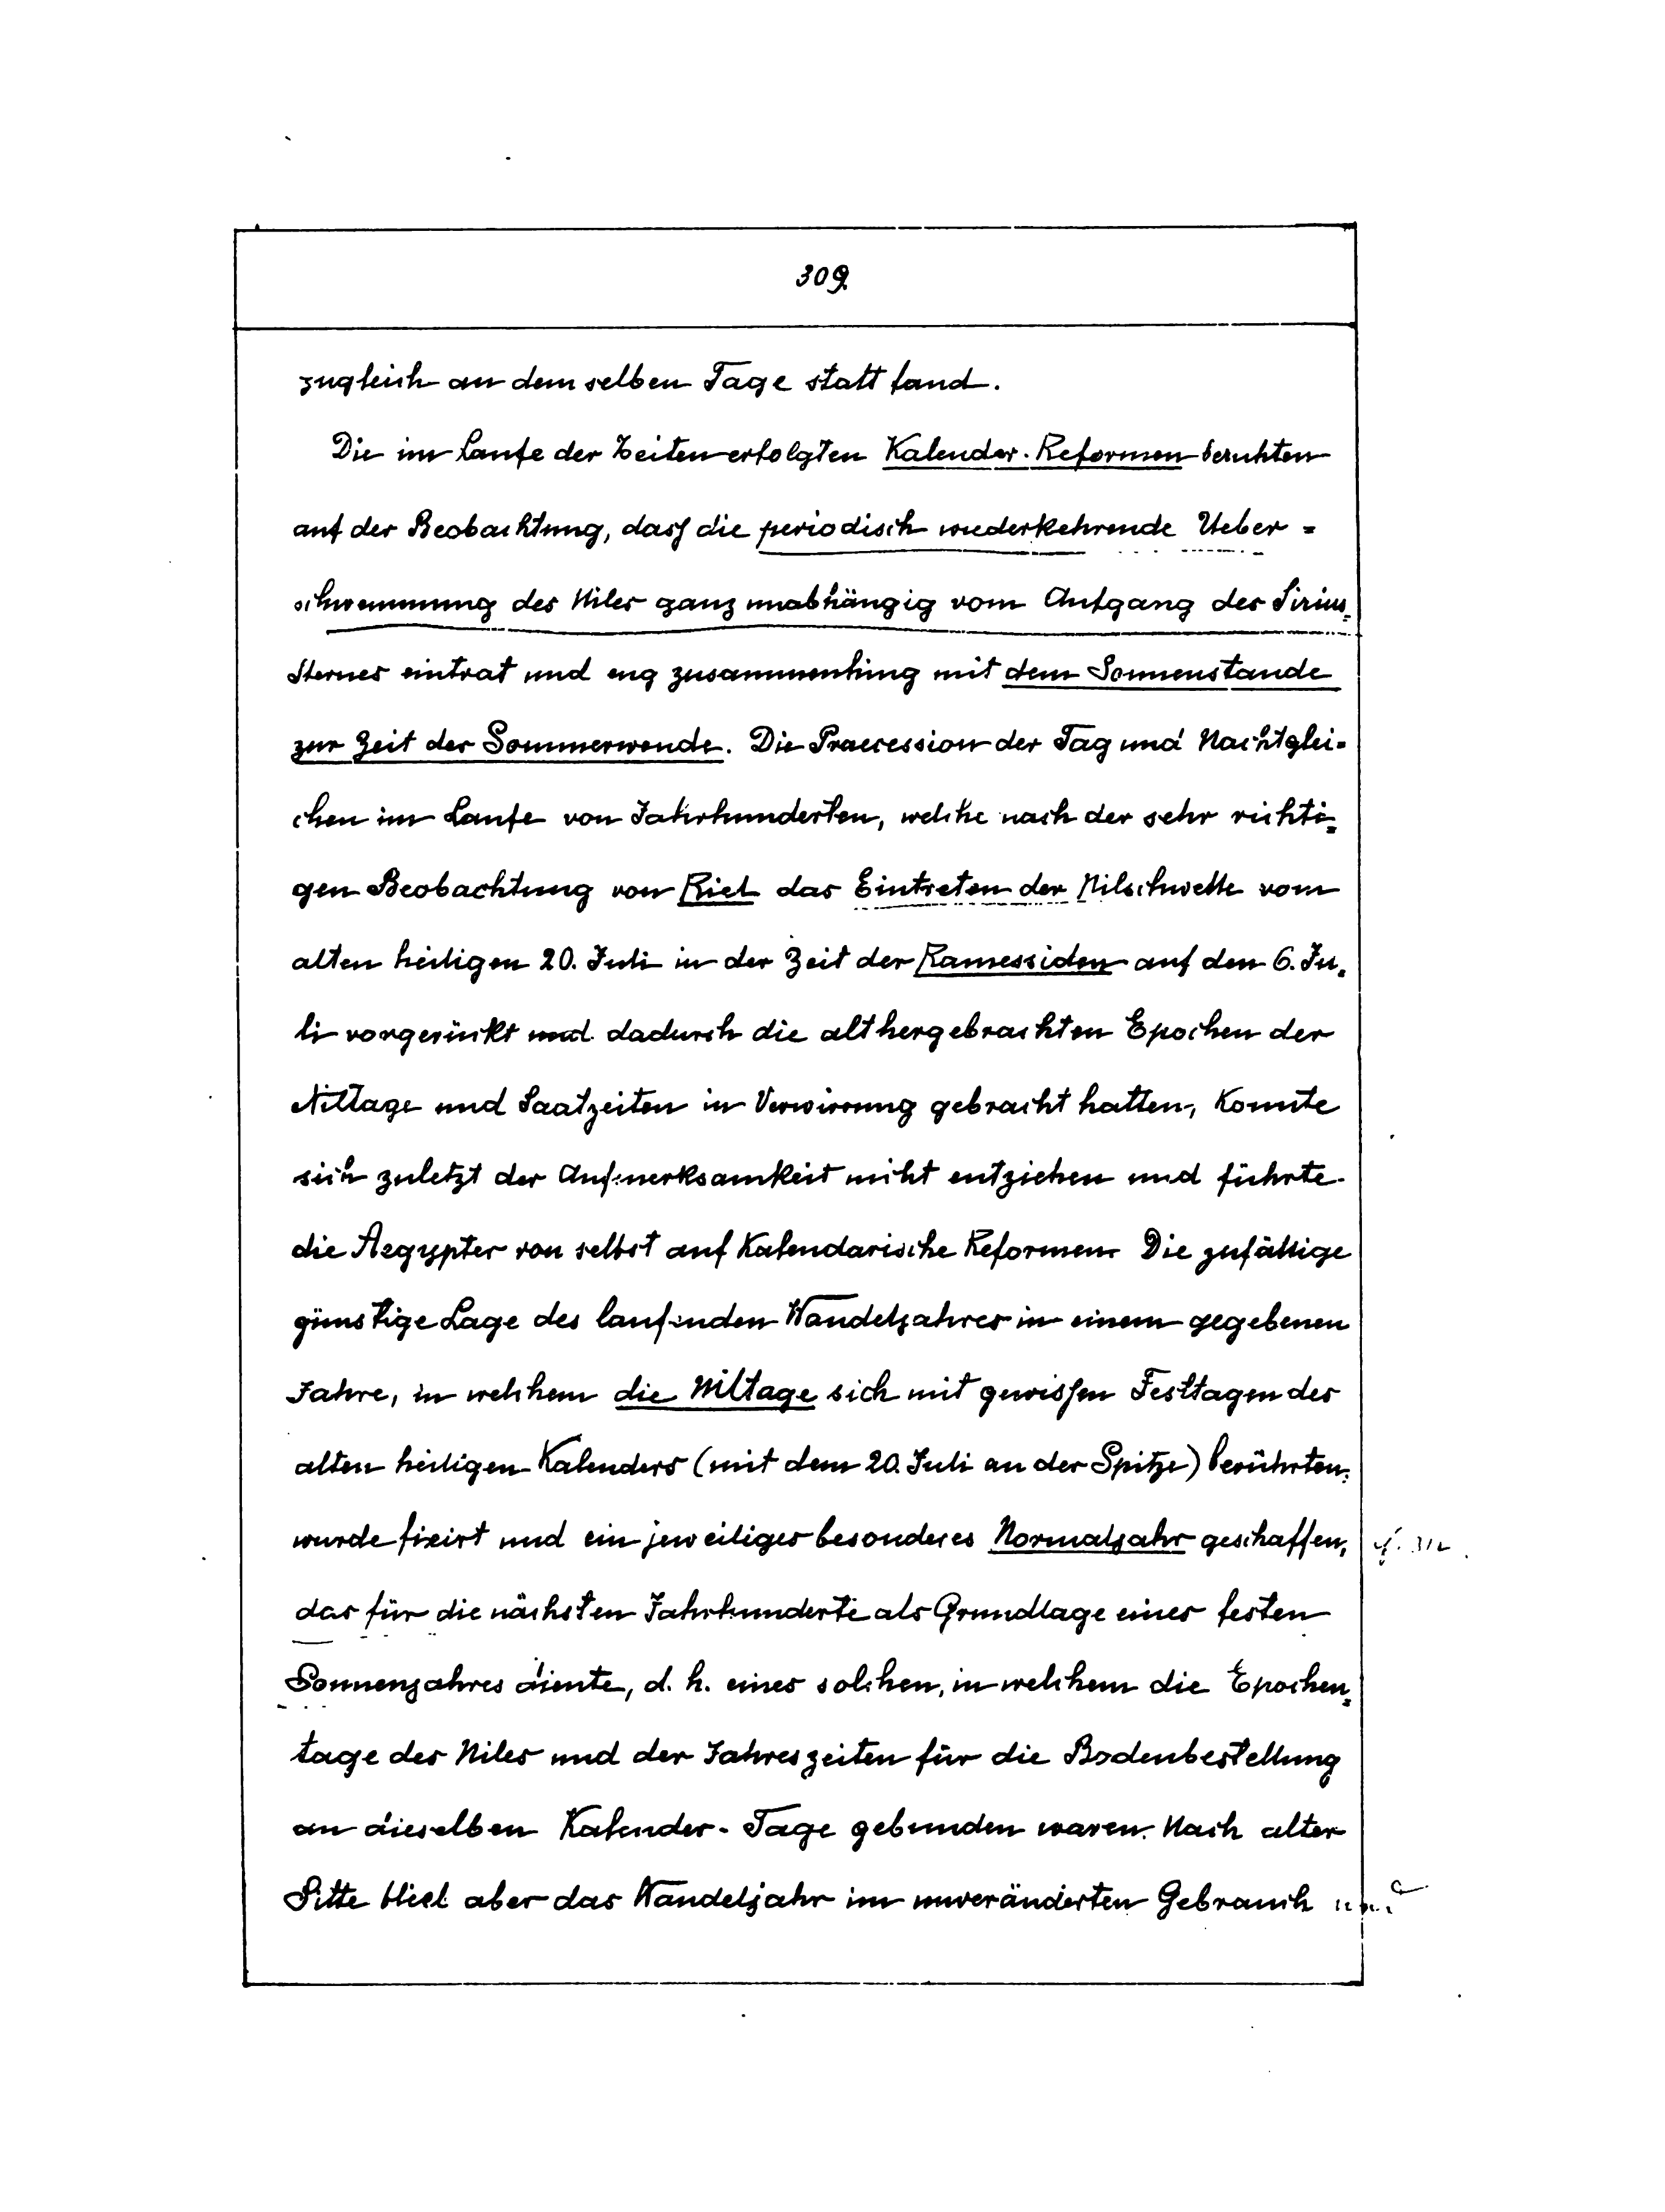 309.
zugleich an demselben Tage statt fand.
Die im Laufe der Zeiten erfolgten Kalender-Reformen beruhten
auf der Beobachtung, dass die periodisch wiederkehrende Ueber=
schwemmung des Niles ganz unabhängig vom Aufgang des Sirius=
Sternes eintrat und eng zusammenhing mit dem Sonnenstande
zur Zeit der Sommerwende. Die Praecession der Tag und Nachtglei=
chen im Laufe von Jahrhunderten, welche nach der sehr richti=
gen Beobachtung von Riel das Eintreten der Nilschwelle vom
alten heiligen 20. Juli in der Zeit der Ramessiden auf den 6. Ju=
li vorgerückt und dadurch die althergebrachten Epochen der
Niltage und Saatzeiten in Verwirrung gebracht hatten, konnte
sich zuletzt der Aufmerksamkeit nicht entziehen und führte
die Aegypter von selbst auf Kalendarische Reformen. Die zufällige
günstige Lage des laufenden Wandeljahres in einem gegebenen
Jahre, in welchem die Niltage sich mit gewissen Festtagen des
alten heiligen Kalenders (mit dem 20. Juli an der Spitze) berührten,
wurde fixirt und ein jeweiliges besonderes Normaljahr geschaffen, cf. 312
das für die nächsten Jahrhunderte als Grundlage eines festen
Sonnenjahres diente, d. h. eines solchen, in welchem die Epochen=
tage des Niles und der Jahreszeiten für die Bodenbestellung
an dieselben Kalender-Tage gebunden waren. Nach alter
Sitte blieb aber das Wandeljahr im unveränderten Gebrauch und